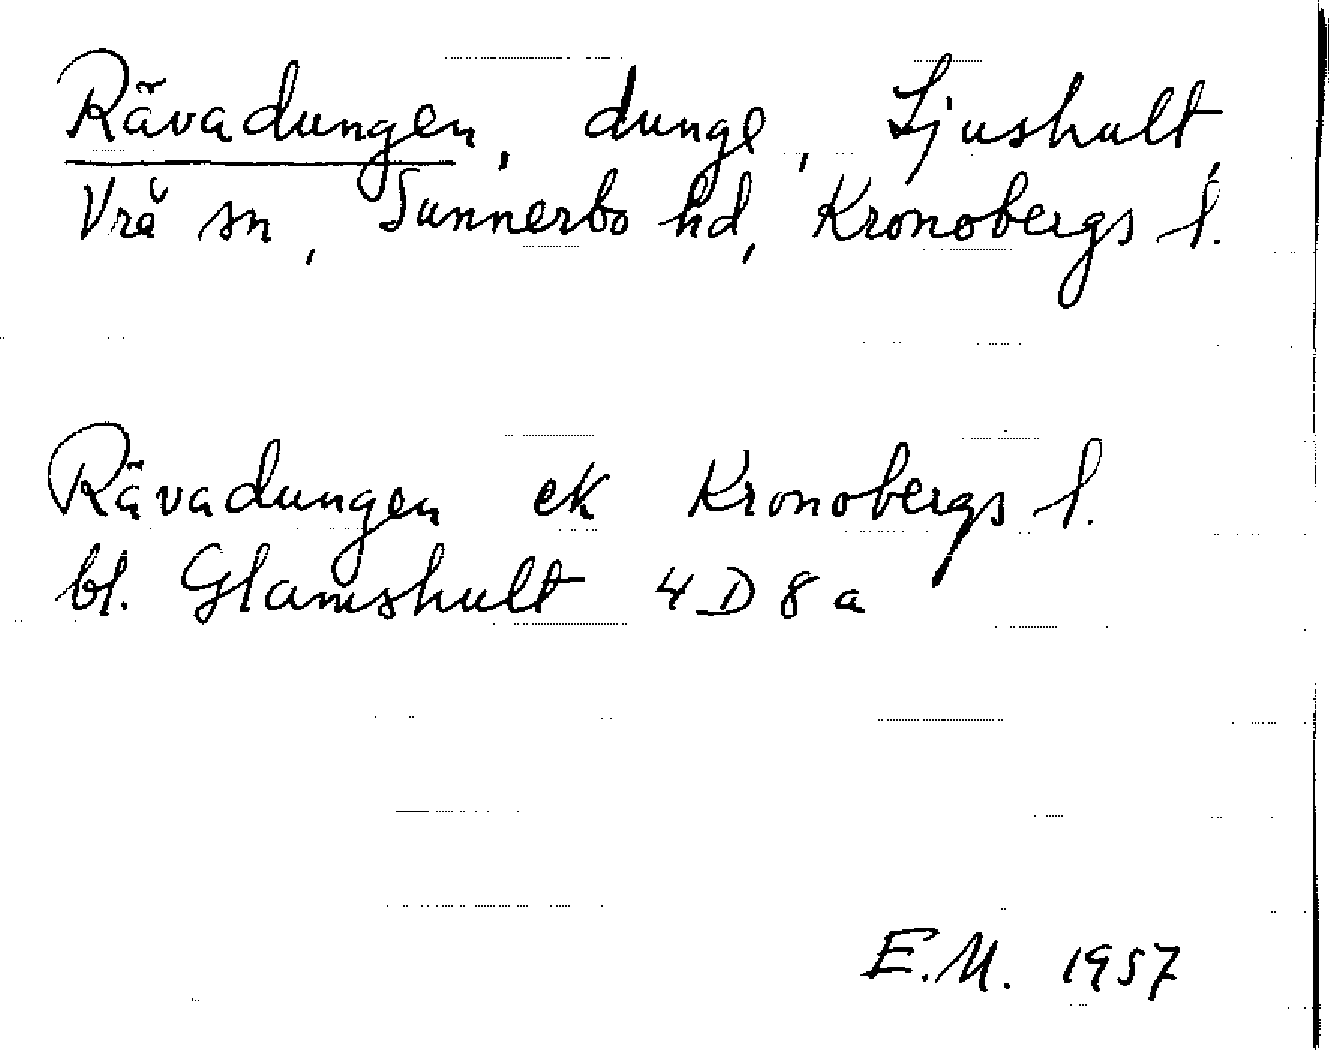 Rävadungen, dunge, Ljushult,
Vrå sn, Sunnerbo hd, Kronobergs l.
Rävadungen ek Kronobergs l.
bl. Glamshult 4 D 8 a
E.M. 1957